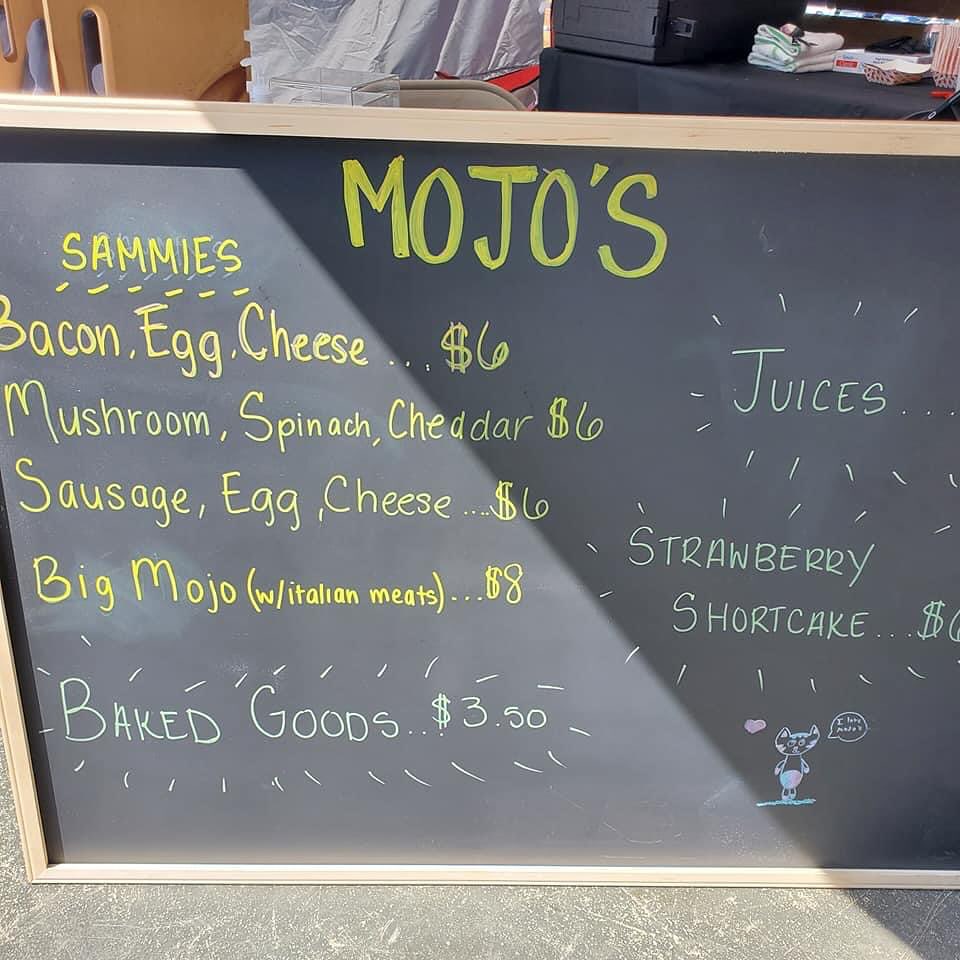 MOJO'S
SAMMIES
Bacon, Egg, Cheese ... $6
Mushroom, Spinach, Cheddar $6
Sausage, Egg, Cheese ....$6
Big Mojo (w/italian meats)...$8
BAKED GOODS..$3.50
JUICES....
STRAWBERRY
SHORTCAKE...$6
I love
mojo's